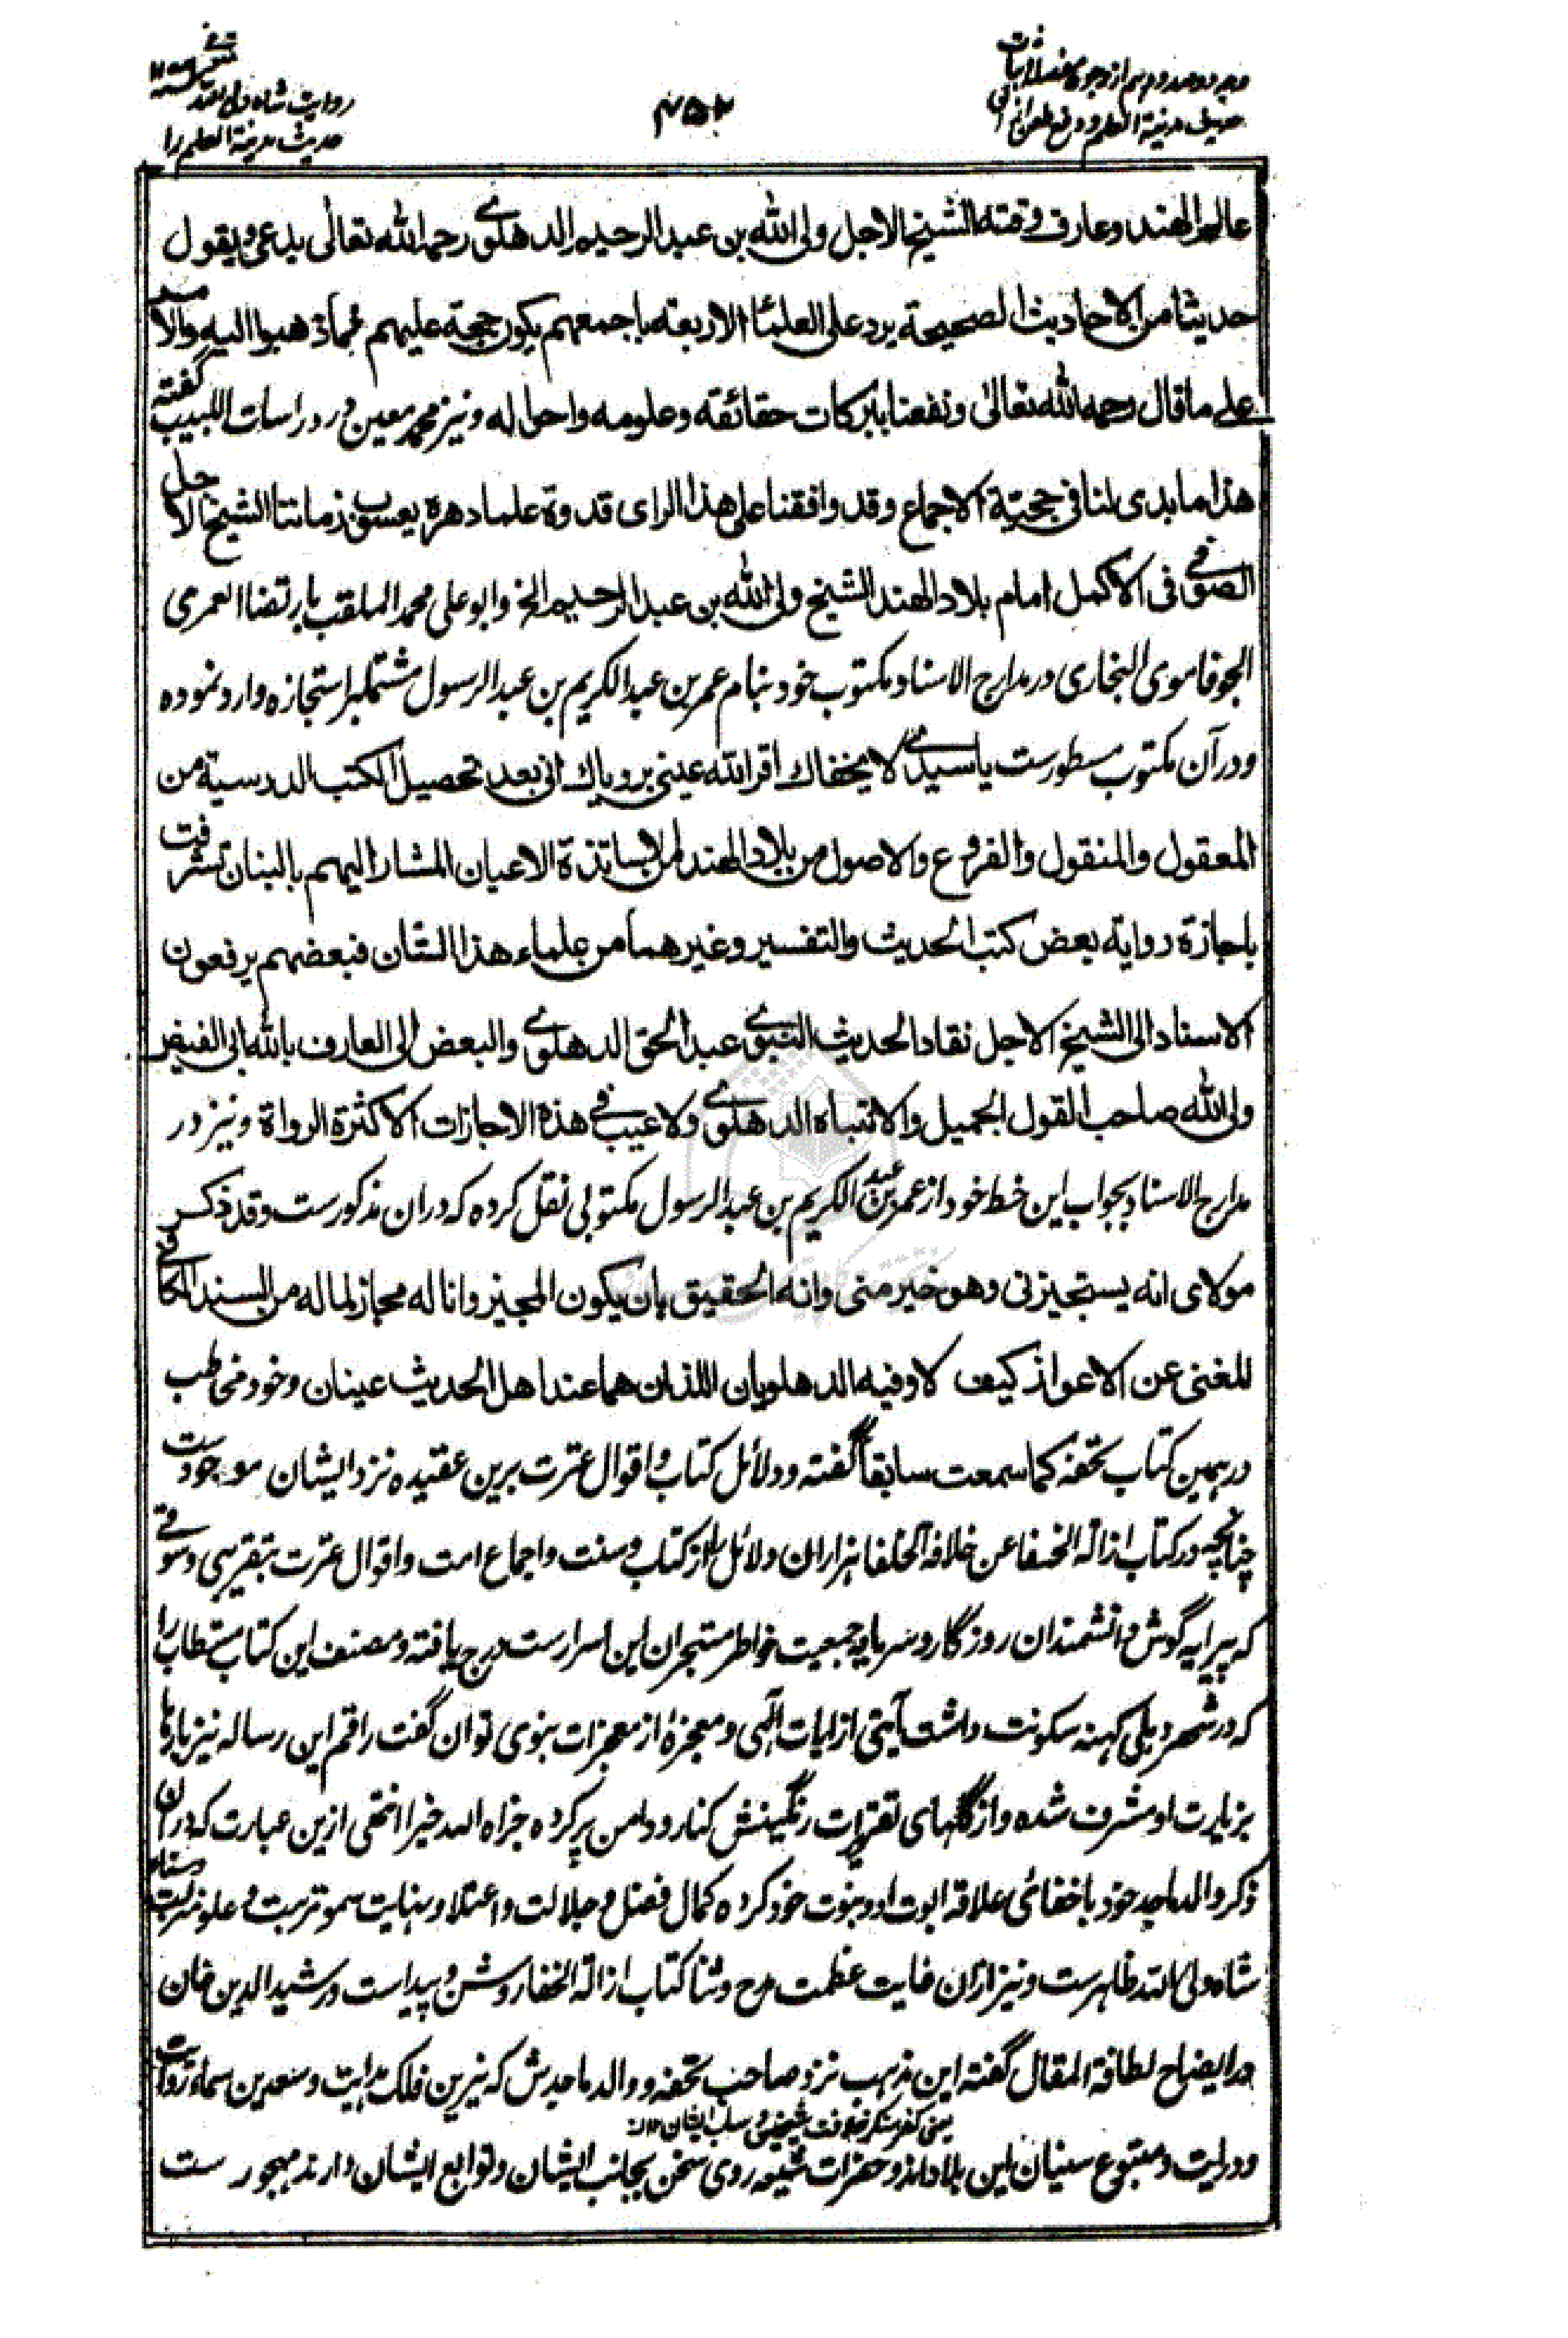 وجه دو صد و دوم از وجوه
حدیث مدینة العلم و دفع طعن
۴۵۲
متوفی سنه
روایت شاه ولی الله
حدیث مدینة العلم را
عالم الهند وعارف وقته الشیخ الاجل ولی الله بن عبد الرحیم الدهلوی رحمه الله تعالی یدعی ویقول
حدیثا من الاحادیث الصحیحة یرد علی العلماء الاربعة باجمعهم یکون حجة علیهم فیما ذهبوا الیه والامر
علی ما قال رحمه الله تعالی ونفعنا ببرکات حقائقه وعلومه واحواله ونیز محمد معین در دراسات اللبیب گفته
هذا ما بدی لنا فی حجیة الاجماع وقد وافقنا علی هذا الرای قدوة علماء دهره یعسوب زماننا الشیخ الاجل
الصوفی الاکمل امام بلاد الهند الشیخ ولی الله بن عبد الرحیم الخ وابو علی محمد الملقب بارتضا العمری
الجوفاموی البخاری در مدارج الاسناد مکتوب خود بنام عمر بن عبد الکریم بن عبد الرسول مشتملبر استجازه وارد نموده
ودر آن مکتوب مسطورست یا سیدی لا یخفاک اقر الله عینی برویاک انی بعد تحصیل الکتب الدرسیة من
المعقول والمنقول والفروع والاصول من بلاد الهند من الاساتذة الاعیان المشار الیهم بالبنان تشرفت
باجازة روایة بعض کتب الحدیث والتفسیر وغیرهما من علماء هذا الشان فبعضهم یرفعون
الاسناد الی الشیخ الاجل نقاد الحدیث النبوی عبد الحق الدهلوی والبعض الی العارف بالله ابی الفیض
ولی الله صاحب القول الجمیل والانتباه الدهلوی ولا عیب فی هذه الاجازات الا کثرة الرواة ونیز در
مدارج الاسناد بجواب این خط خود از عمر بن عبد الکریم بن عبد الرسول مکتوبی نقل کرده که دران مذکورست وقد ذکر
مولای انه یستجیزنی وهو خیر منی وانه الحقیق بان یکون المجیز وانا له مجاز لما له من السند الکافی
المغنی عن الاعواز کیف لا وفیه الدهلویان اللذان هما عند اهل الحدیث عینان وخود مخاطب
در همین کتاب تحفه کما سمعت سابقا گفته ودلائل کتاب واقوال عترت برین عقیده نزد ایشان موجودست
چنانچه در کتاب ازالة الخفا عن خلافة الخلفا هزاران دلائل را از کتاب وسنت واجماع امت واقوال عترت بتقریبی وسوقی
که پیرایه گوش دانشمندان روزگار وسرمایه جمعیت خواطر متبحران این اسرارست درج یافته ومصنف این کتاب مستطاب را
که در شهر دهلی کهنه سکونت داشت آیتی از ایات الهی ومعجزهٔ از معجزات نبوی توان گفت راقم این رساله نیز بارها
بزیارت او مشرف شده واز گلهای تقریرات رنگینش کنار ودامن پر کرده جزاه الله خیرا انتهی ازین عبارت که دران
ذکر والد ماجد خود باخفای علاقه ابوت او وبنوت خود کرده کمال فضل وجلالت واعتلا ونهایت سمو مرتبت وعلو منزلت جناب
شاه ولی الله ظاهرست ونیز ازان غایت عظمت مدح وثنا کتاب ازالة الخفا روشن وپیداست ورشید الدین خان
در ایضاح لطافة المقال گفته این مذهب نزد صاحب تحفه ووالد ماجدش که نیرین فلک هدایت وسعدین سماء روایت
یعنی کفر منکر خلافت شیخین وسب ایشان ۱۲
ودرایت ومتبوع سنیان این بلاد اند وحضرات شیعه روی سخن بجانب ایشان وتوابع ایشان دارند مهجور ست